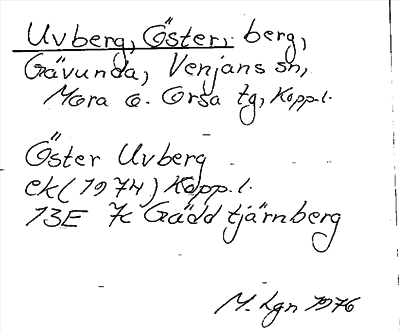 Uvberg, Öster, berg,
Gävunda, Venjans sn,
Mora o. Orsa tg, Kopp.l.
Öster Uvberg
ek(1974) Kopp.l.
13E 7c Gäddtjärnberg
M. Lgn 1976